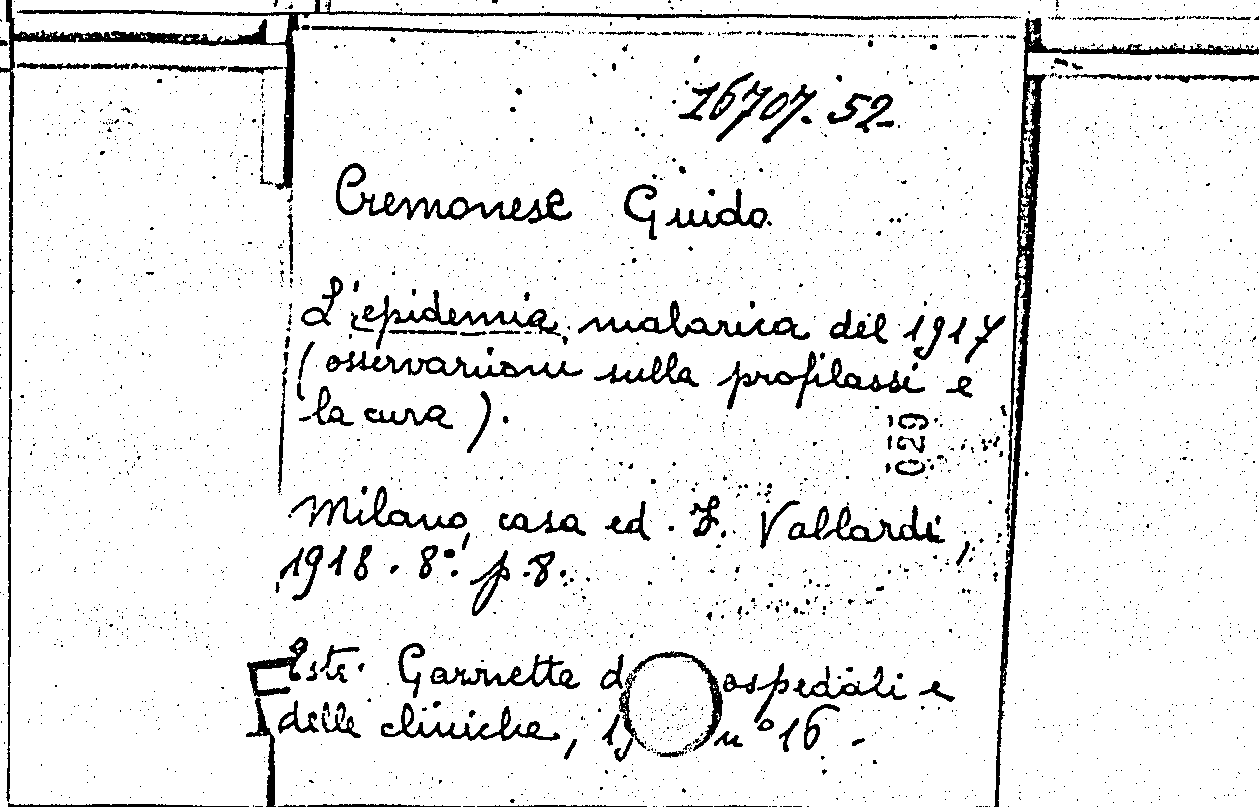 16707.52
Cremonese Guido
L'epidemia malarica del 1917
(osservazioni sulla profilassi e
la cura).
029
Milano, casa ed. F. Vallardi,
1918. 8°. p. 8.
Estr. Gazzetta ospedali e
delle cliniche, n° 16.